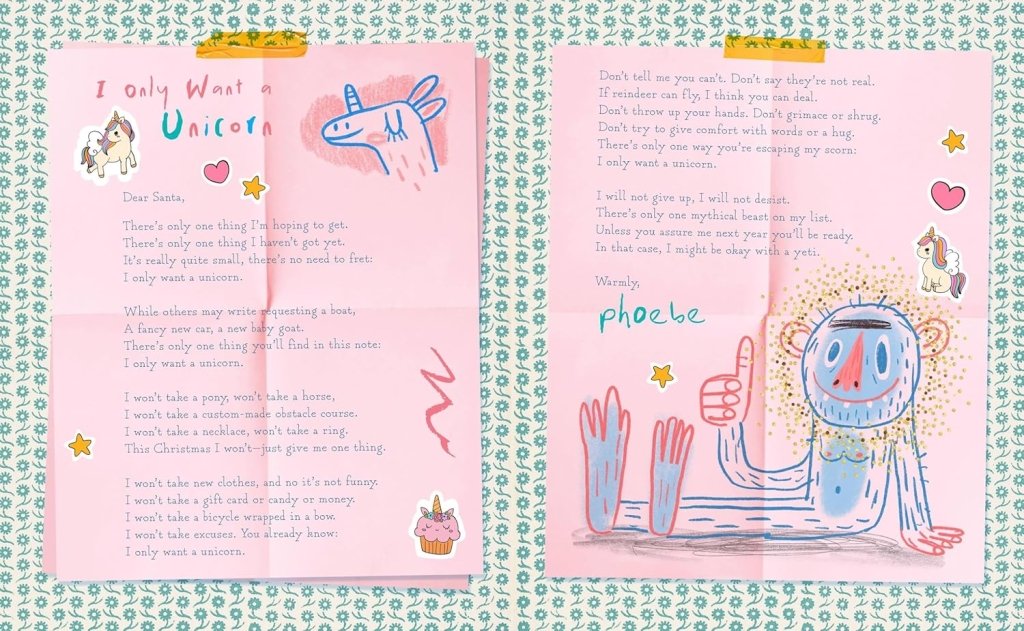 I only Want a
Unicorn
Dear Santa,
There's only one thing I'm hoping to get.
There's only one thing I haven't got yet.
It's really quite small, there's no need to fret:
I only want a unicorn.
While others may write requesting a boat,
A fancy new car, a new baby goat.
There's only one thing you'll find in this note:
I only want a unicorn.
I won't take a pony, won't take a horse,
I won't take a custom-made obstacle course.
I won't take a necklace, won't take a ring.
This Christmas I won't—just give me one thing.
I won't take new clothes, and no it's not funny.
I won't take a gift card or candy or money.
I won't take a bicycle wrapped in a bow.
I won't take excuses. You already know:
I only want a unicorn.
Don't tell me you can't. Don't say they're not real.
If reindeer can fly, I think you can deal.
Don't throw up your hands. Don't grimace or shrug.
Don't try to give comfort with words or a hug.
There's only one way you're escaping my scorn:
I only want a unicorn.
I will not give up, I will not desist.
There's only one mythical beast on my list.
Unless you assure me next year you'll be ready.
In that case, I might be okay with a yeti.
Warmly,
phoebe